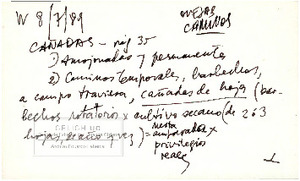 W 8/7/89
OVEJAS
CAMINOS
CAÑADAS - pág 35
1) Amojonadas y permanentes
2) Caminos temporales, barbechos,
a campo traviesa, cañadas de hoja (bar-
bechos rotatorio x cultivo secano (de 2 ó 3
hojas,
mesta
amparadas x
privilegios
reales